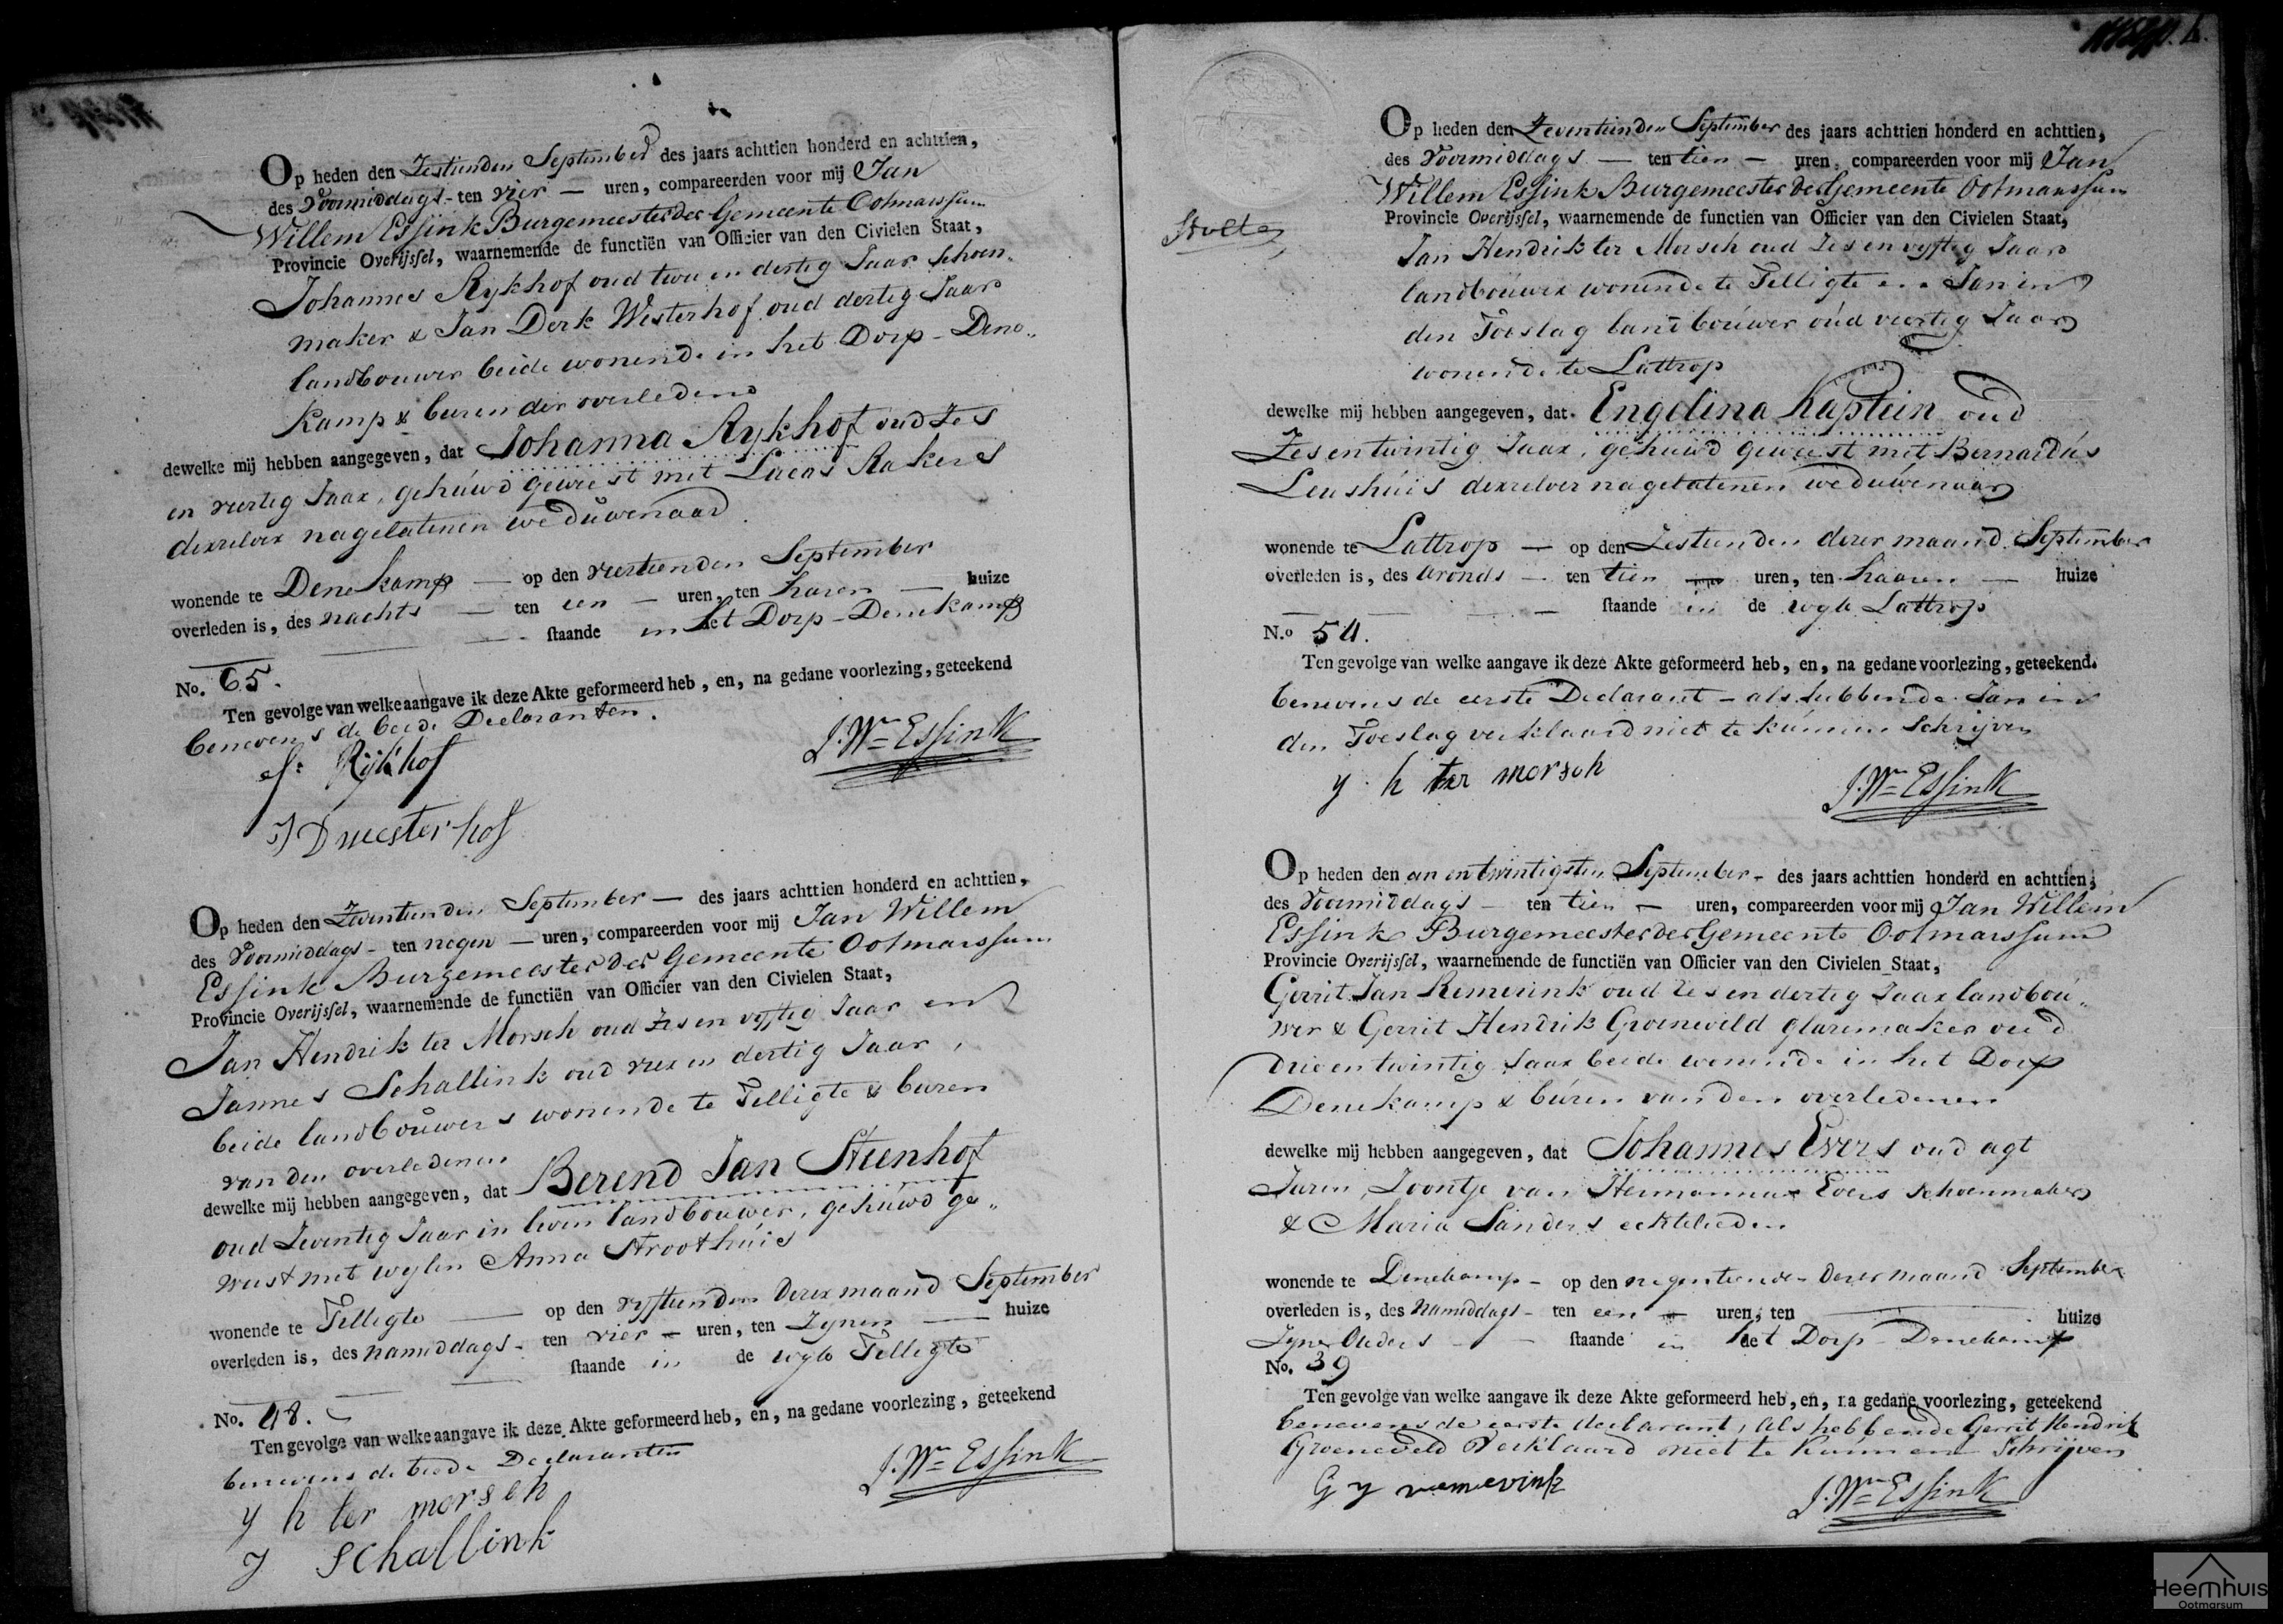 Op heden den Zestienden September des jaars achttien honderd en achttien,
des Voormiddags - ten vier — uren, compareerden voor mij Jan
Willem Essink Burgemeester der Gemeente Ootmarssum
Provincie Overijssel, waarnemende de functiën van Officier van den Civielen Staat,
Johannes Rykhof oud twee en dertig Jaar Schoen„
maker & Jan Derk Westerhof oud dertig Jaar
landbouwer beide wonende in het Dorp - Dene„
kamp & buren der overledene
dewelke mij hebben aangegeven, dat Johanna Rykhof oud Zes
en veertig Jaar, gehuwd geweest met Lucas Rakers
derzelver nagelatenen weduwenaar
wonende te Denekamp — op den veertienden September
overleden is, des nachts — ten een — uren, ten haren — huize
staande in het Dorp - Denekamp
No. 65.
Ten gevolge van welke aangave ik deze Akte geformeerd heb, en, na gedane voorlezing, geteekend
benevens de beide Declaranten.
J. Wm Essink
Rijkhof
J D weesterhof
Op heden den Zeventienden September — des jaars achttien honderd en achttien,
des Voormiddags - ten negen — uren, compareerden voor mij Jan Willem
Essink Burgemeester der Gemeente Ootmarssum
Provincie Overijssel, waarnemende de functiën van Officier van den Civielen Staat,
Jan Hendrik ter Morsch oud Zes en vyftig Jaar en
Jannes Schallink oud vier en dertig Jaar,
beide landbouwers wonende te Tilligte & buren
van den overledenen
dewelke mij hebben aangegeven, dat Berend Jan Steenhof
oud Zeventig Jaar in leven landbouwer, gehuwd ge„
weest met wylen Anna Stroothuis
wonende te Tilligte — op den vyftienden dezer maand September
overleden is, des namiddags - ten vier — uren, ten Zynen — huize
staande in de wyk Tilligte
No. 48.
Ten gevolge van welke aangave ik deze Akte geformeerd heb, en, na gedane voorlezing, geteekend
benevens de beide Declaranten
J. Wm Essink
y h ter morsch
J Schallink
Stolte
Op heden den Zeventienden September des jaars achttien honderd en achttien,
des Voormiddags — ten tien — uren, compareerden voor mij Jan
Willem Essink Burgemeester der Gemeente Ootmarssum
Provincie Overijssel, waarnemende de functien van Officier van den Civielen Staat,
Jan Hendrik ter Morsch oud Zes en vyftig Jaar
landbouwer wonende te Tilligte en Jan in
den Toeslag landbouwer oud veertig Jaar
wonende te Lattrop
dewelke mij hebben aangegeven, dat Engelina Kaptein oud
Zes en twintig Jaar, gehuwd geweest met Bernardus
Leushuis derzelver nagelatenen weduwenaar
wonende te Lattrop — op den Zestienden dezer maand September
overleden is, des avonds — ten tien — uren, ten haaren — huize
staande in de wyk Lattrop
N.o 54.
Ten gevolge van welke aangave ik deze Akte geformeerd heb, en, na gedane voorlezing, geteekend.
benevens de eerste Declarant - als hebbende Jan in
den Toeslag verklaard niet te kunnen Schrijven
y. h ter morsch
J. Wm Essink
Op heden den an en twintigsten September - des jaars achttien honderd en achttien,
des Voormiddags — ten tien — uren, compareerden voor mij Jan Willem
Essink Burgemeester der Gemeente Ootmarssum
Provincie Overijssel, waarnemende de functiën van Officier van den Civielen Staat,
Gerrit Jan Remerink oud Zes en dertig Jaar landbou„
wer & Gerrit Hendrik Groeneveld glazemaker oud
drie en twintig Jaar beide wonende in het Dorp
Denekamp & buren van den overledenen
dewelke mij hebben aangegeven, dat Johannes Evers oud agt
Jaren, Zoontje van Hermannus Evers Schoenmaker
& Maria Sanders echtelieden
wonende te Denekamp - op den negentienden dezer maand September
overleden is, des Namiddags - ten een — uren, ten — huize
Zyner Ouders - staande in het Dorp - Denekamp
No. 39
Ten gevolge van welke aangave ik deze Akte geformeerd heb, en, na gedane voorlezing, geteekend
benevens de eerste declarant, als hebbende Gerrit Hendrik
Groeneveld Verklaard niet te kunnen Schrijven
G y remerink
J. Wm Essink
Heemhuis
Ootmarsum